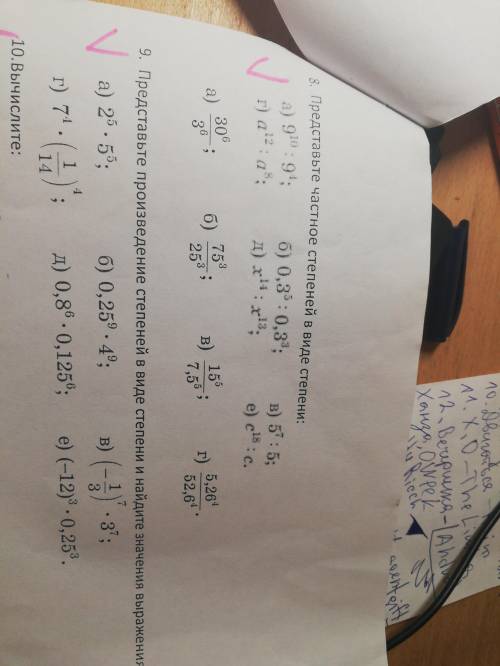 8. Представьте частное степеней в виде степени:
а) 9^10 : 9^4; б) 0,3^5 : 0,3^3; в) 5^7 : 5;
г) a^12 : a^8; д) x^14 : x^13; е) c^18 : c.
а) 30^6/3^6; б) 75^3/25^3; в) 15^5/7,5^5; г) 5,26^4/52,6^4.
9. Представьте произведение степеней в виде степени и найдите значения выражения
а) 2^5 · 5^5; б) 0,25^9 · 4^9; в) (−1/3)^7 · 3^7;
г) 7^4 · (1/14)^4; д) 0,8^6 · 0,125^6; е) (−12)^3 · 0,25^3.
10. Вычислите:
11. X, O - The
12. Вечеринка -